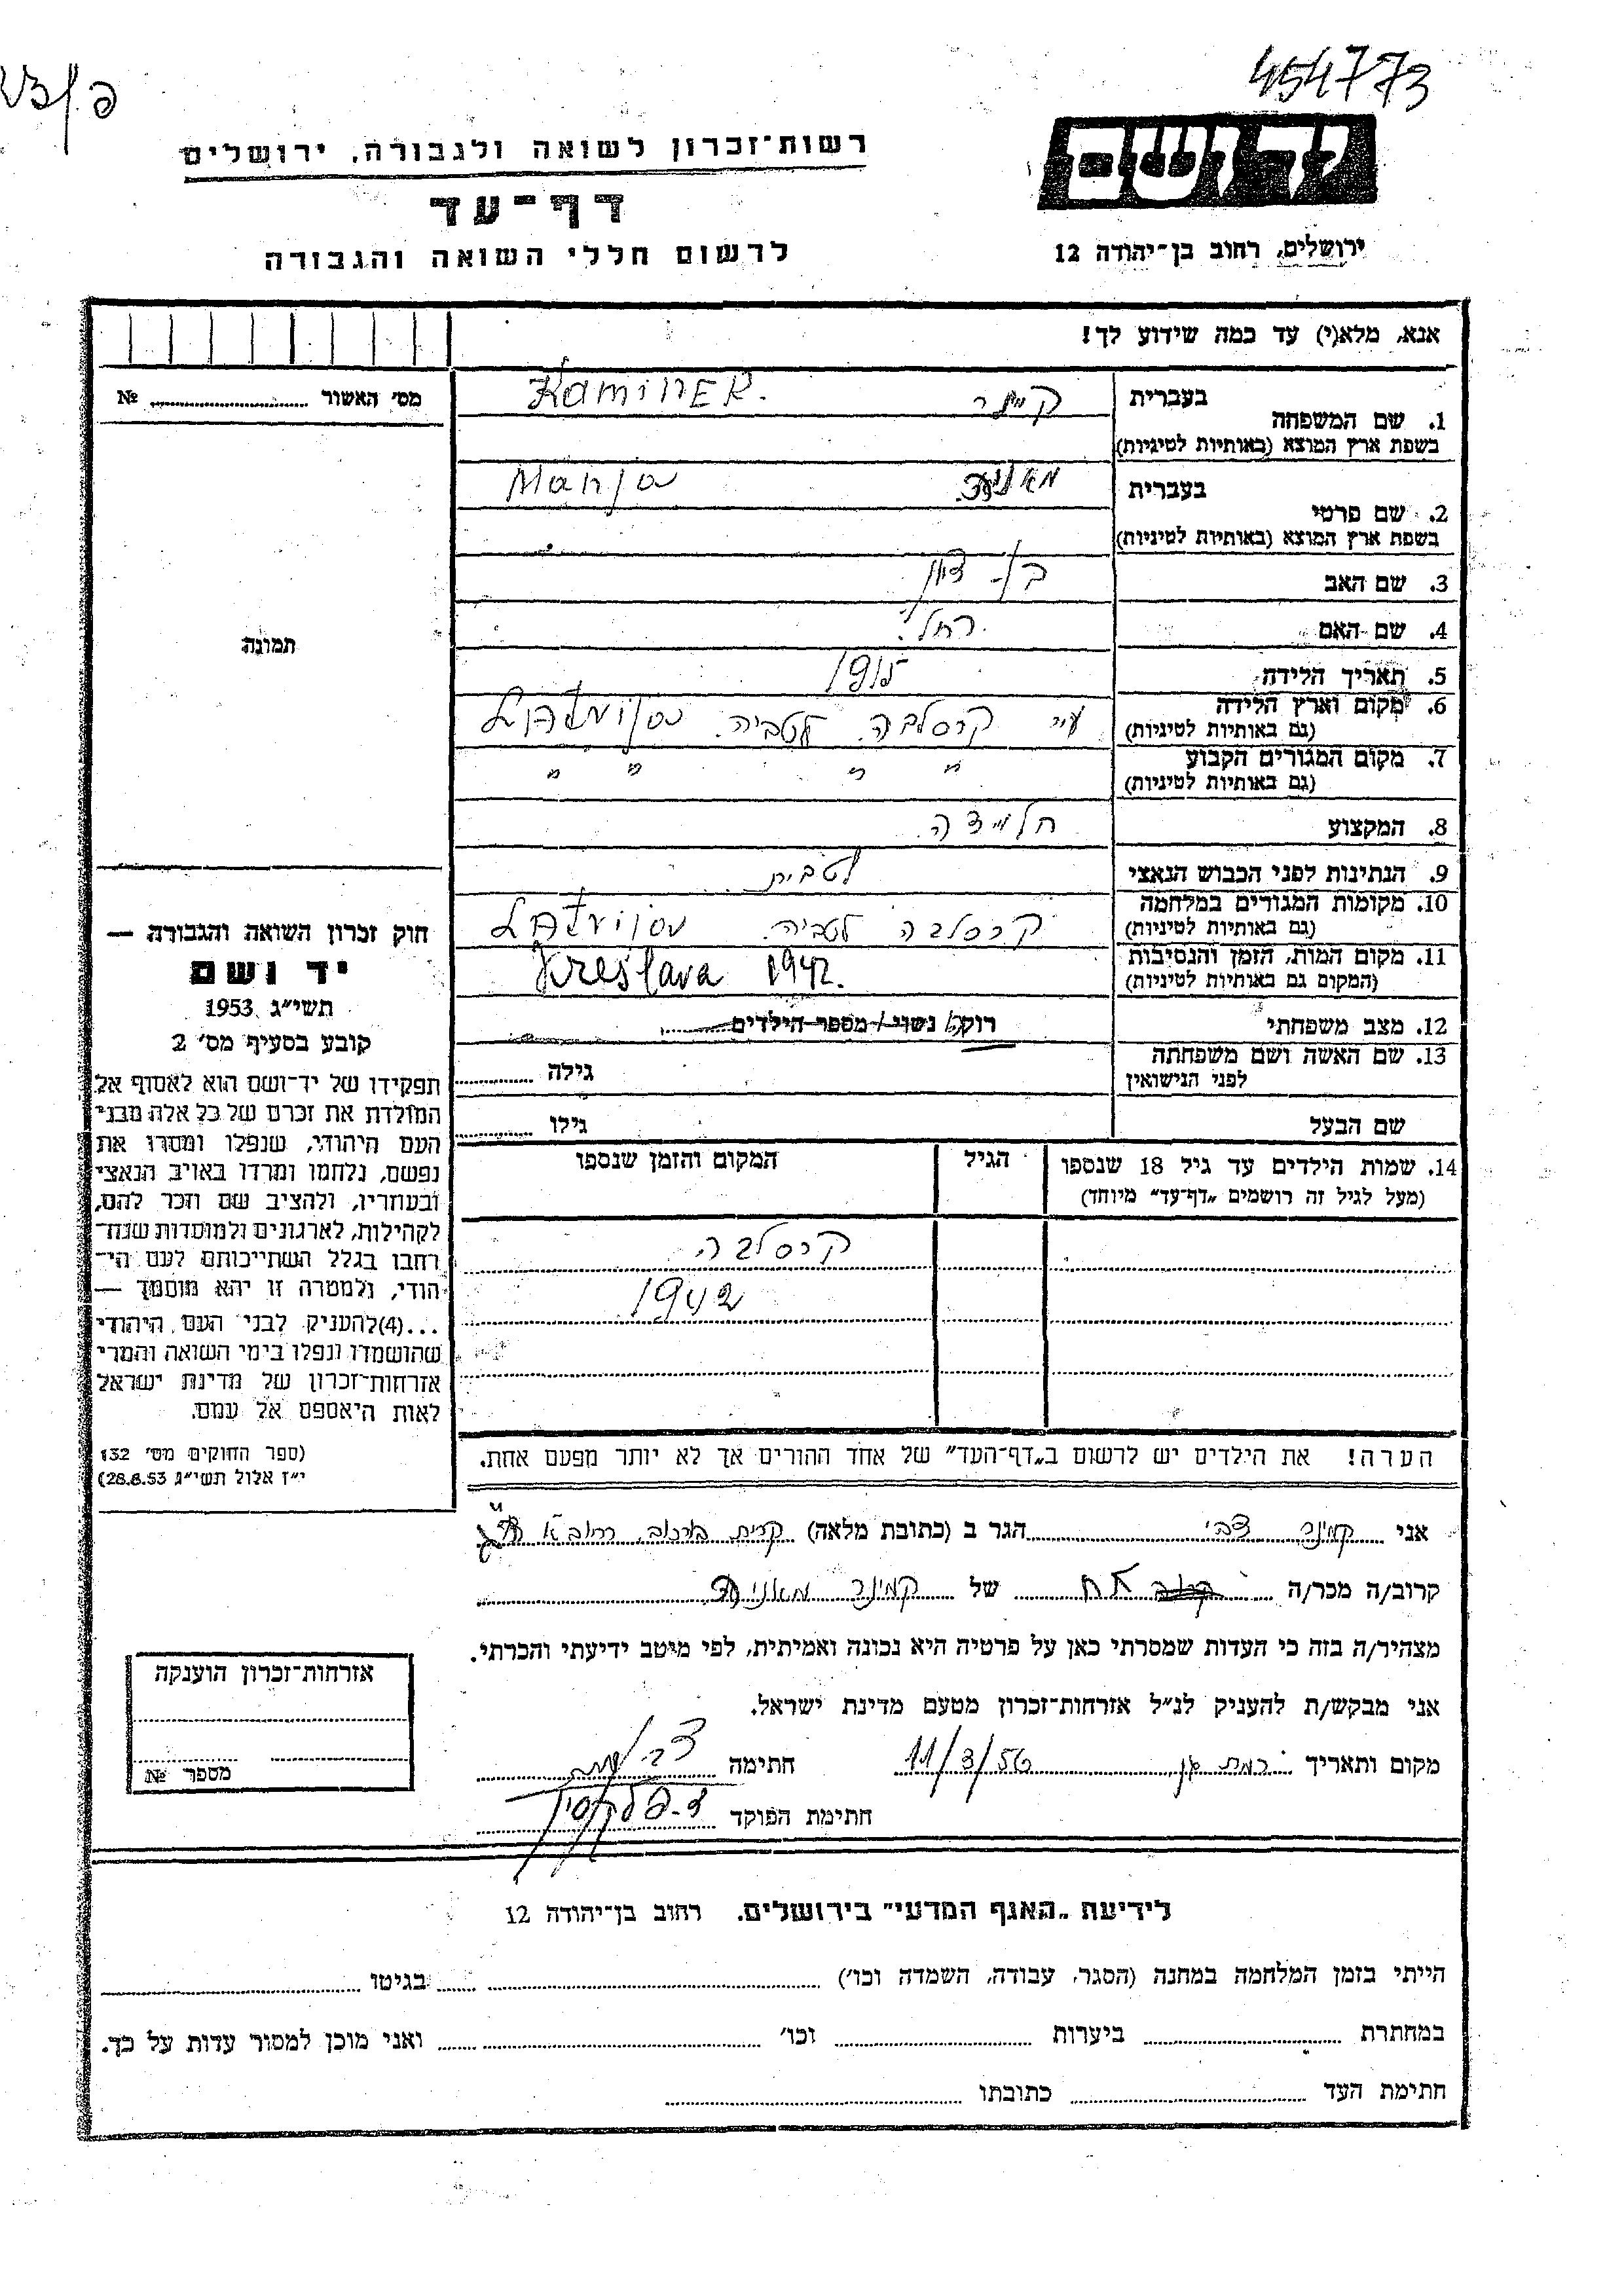 454773
רשות־זכרון לשואה ולגבורה, ירושלים
יד ושם
דף־עד
לרשום חללי השואה והגבורה
ירושלים, רחוב בן־יהודה 12
אנא, מלא(י) עד כמה שידוע לך!
מס' האשור № ............
1. שם המשפחה בעברית קמינר KAMINER.
בשפת ארץ המוצא (באותיות לטיניות)
2. שם פרטי בעברית מאניה Manja
בשפת ארץ המוצא (באותיות לטיניות)
3. שם האב בן-ציון
4. שם האם רחל
5. תאריך הלידה 1915
6. מקום וארץ הלידה (גם באותיות לטיניות) עיי קרסלבה לטביה. Latvija
7. מקום המגורים הקבוע (גם באותיות לטיניות) " " " "
8. המקצוע חלוצה
9. הנתינות לפני הכבוש הנאצי לטבית
10. מקומות המגורים במלחמה (גם באותיות לטיניות) קרסלבה לטביה. Latvija
11. מקום המות, הזמן והנסיבות (המקום גם באותיות לטיניות) Kreslava 1942.
12. מצב משפחתי רוק/ נשוי / מספר הילדים
13. שם האשה ושם משפחתה לפני הנישואין גילה
שם הבעל גילו
14. שמות הילדים עד גיל 18 שנספו (מעל לגיל זה רושמים „דף־עד" מיוחד) הגיל המקום והזמן שנספו
קרסלבה
1942
הערה! את הילדים יש לרשום ב„דף־העד" של אחד ההורים אך לא יותר מפעם אחת.
תמונה
חוק זכרון השואה והגבורה —
יד ושם
תשי״ג 1953
קובע בסעיף מס' 2
תפקידו של יד־ושם הוא לאסוף אל
המולדת את זכרם של כל אלה מבני
העם היהודי, שנפלו ומסרו את
נפשם, נלחמו ומרדו באויב הנאצי
ובעוזריו, ולהציב שם וזכר להם,
לקהילות, לארגונים ולמוסדות שנח־
רבו בגלל השתייכותם לעם הי־
הודי, ולמטרה זו יהא מוסמך —
...(4) להעניק לבני העם היהודי
שהושמדו ונפלו בימי השואה והמרי
אזרחות־זכרון של מדינת ישראל
לאות היאספם אל עמם.
(ספר החוקים מס' 132
י״ז אלול תשי״ג 28.8.53)
אני קמינר צבי הגר ב (כתובת מלאה) קרית
קרוב/ה מכר/ה אח של קמינר מאניה
מצהיר/ה בזה כי העדות שמסרתי כאן על פרטיה היא נכונה ואמיתית, לפי מיטב ידיעתי והכרתי.
אני מבקש/ת להעניק לנ״ל אזרחות־זכרון מטעם מדינת ישראל.
מקום ותאריך רמת גן 11/3/56 חתימה
חתימת הפוקד
אזרחות־זכרון הוענקה
מספר №
לידיעת „האגף המדעי" בירושלים. רחוב בן־יהודה 12
הייתי בזמן המלחמה במחנה (הסגר, עבודה, השמדה וכו') בגיטו
במחתרת ביערות וכו' ואני מוכן למסור עדות על כך.
חתימת העד כתובתו